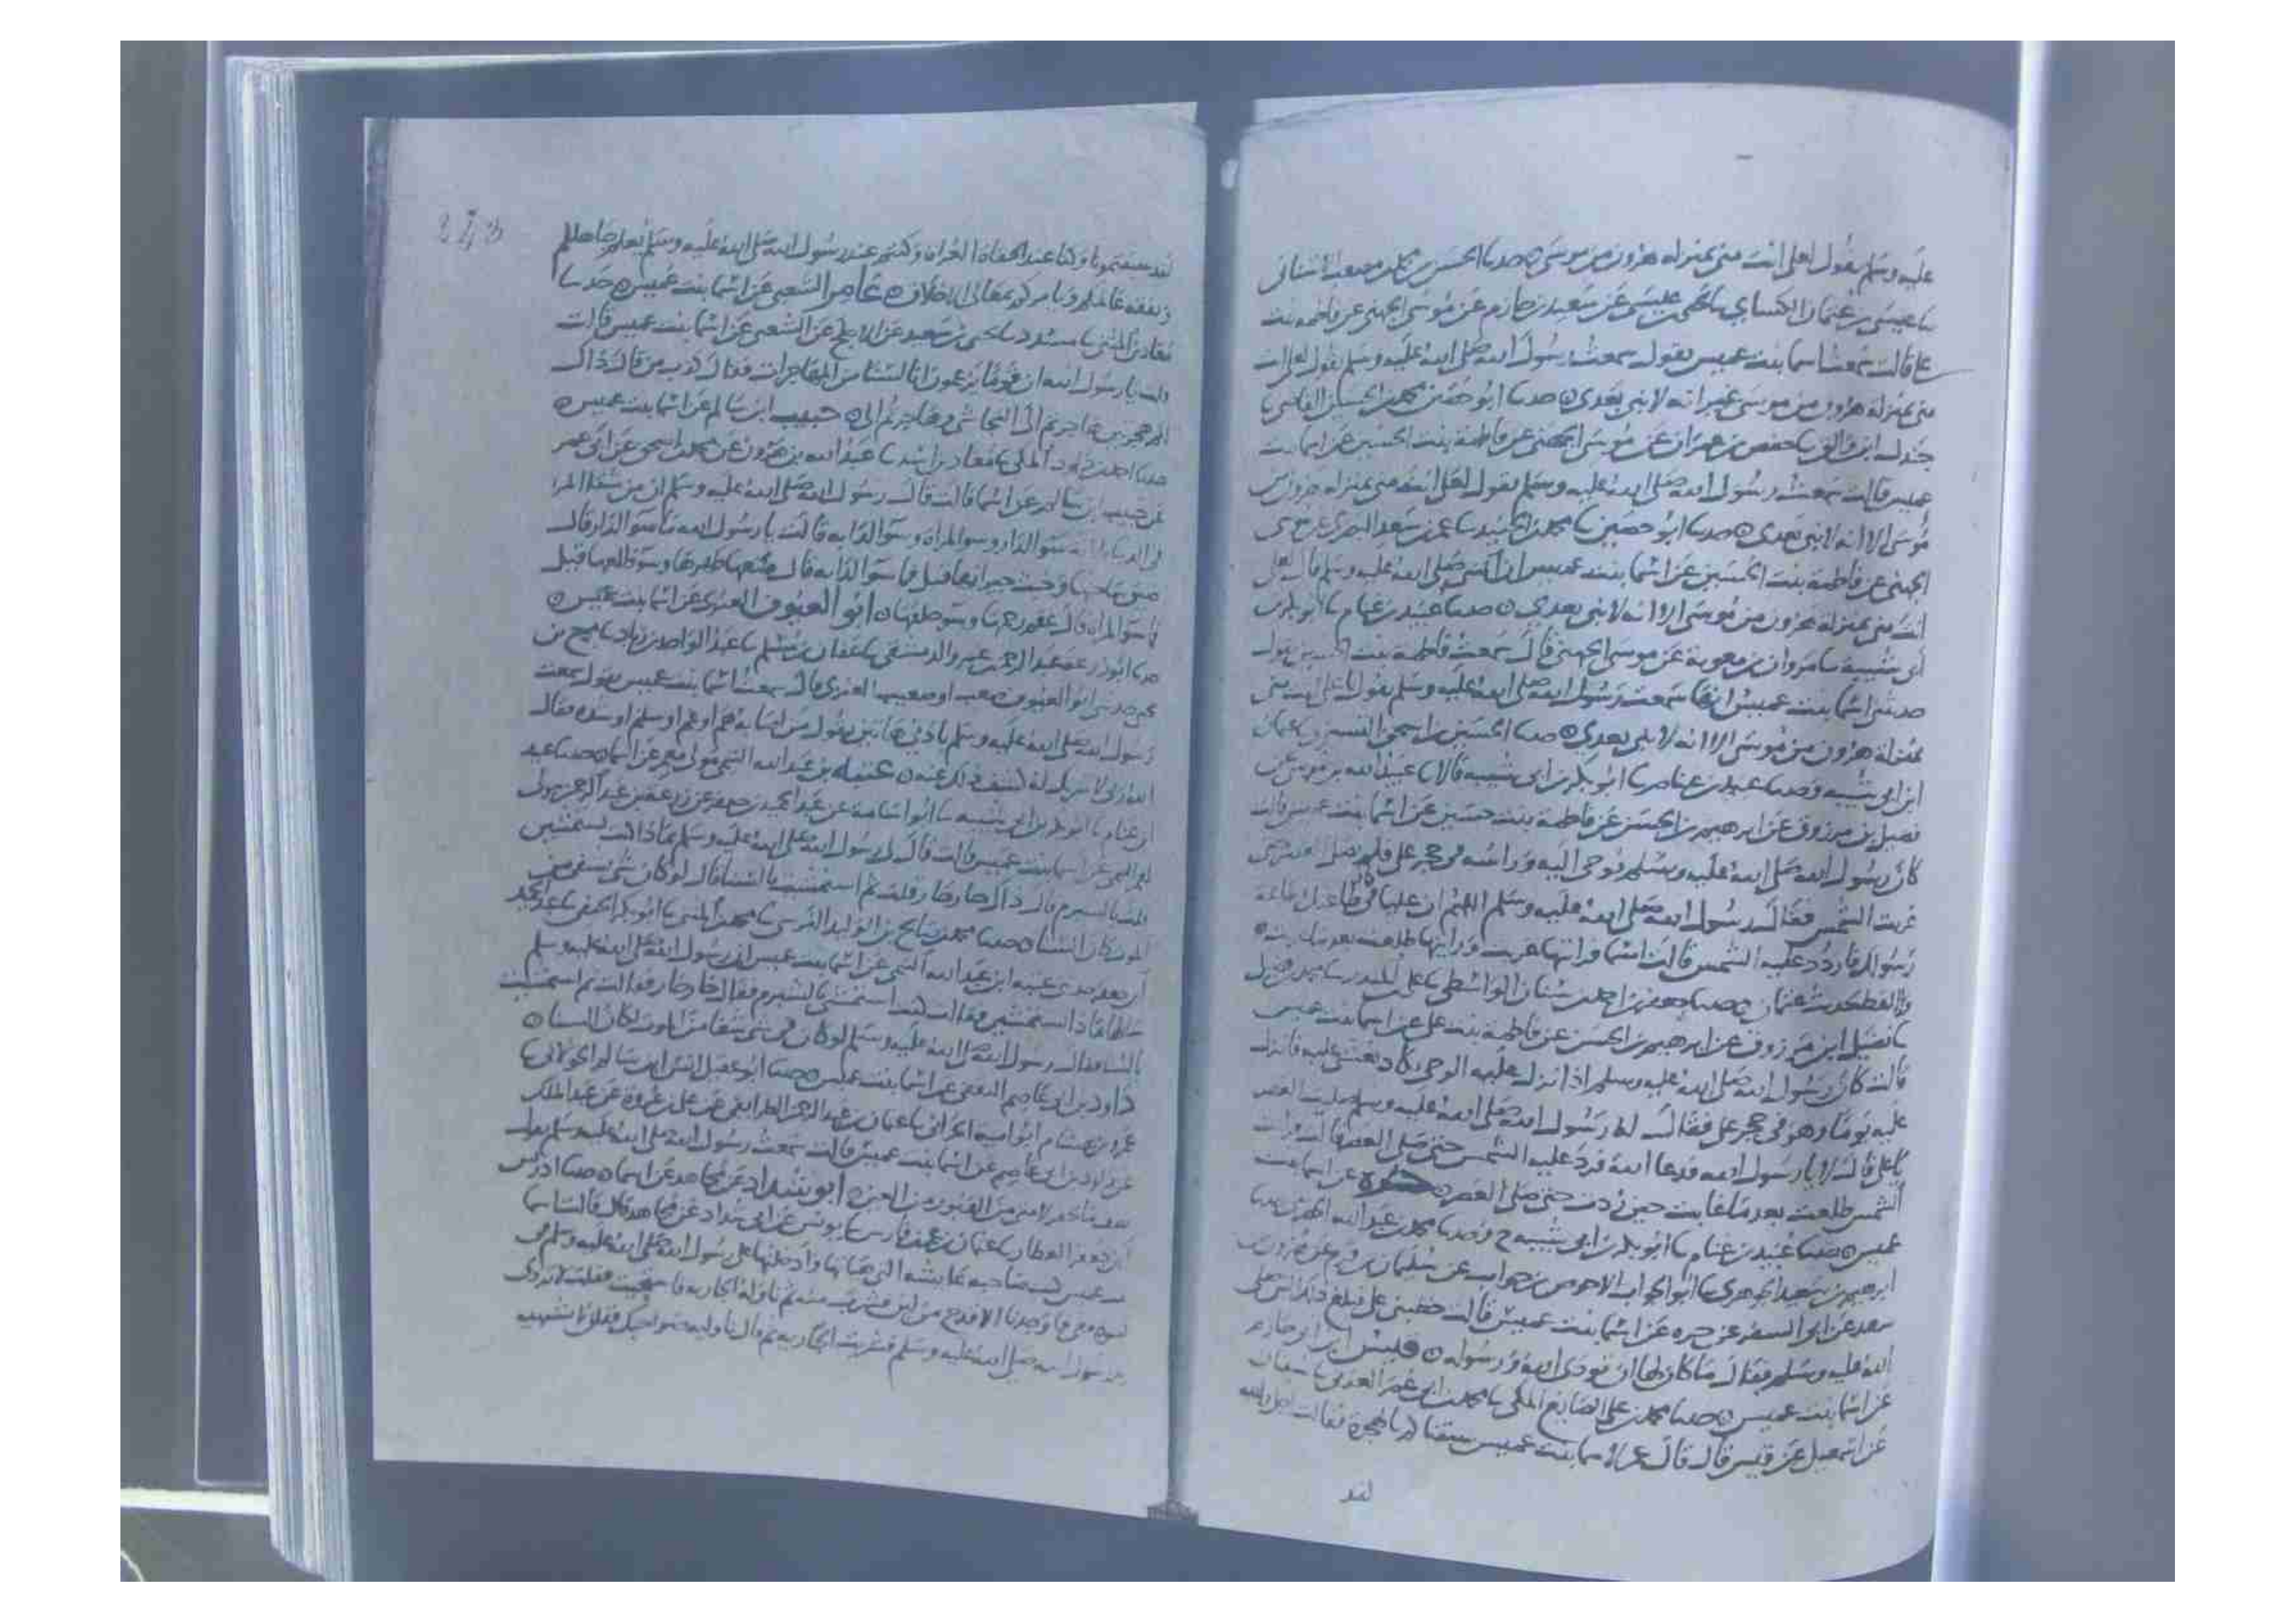 عليه وسلم يقول لعلي انت مني بمنزله هرون من موسى ٥ حدثنا الحسين بن محمد بن مصعب
ثنا عيسى بن عثمان الكسايي ثنا يحيى بن عيسى عن سعيد بن حازم عن موسى الجهني عن فاطمه بنت
علي قالت سمعت اسما بنت عميس تقول سمعت رسول الله صلى الله عليه وسلم يقول لعلي انت
مني بمنزلة هرون من موسى غير انه لا نبي بعدي ٥ حدثنا ابو حصين محمد بن الحسين القاضي ثنا
جندل ابن والق ثنا حفص بن عمران عن موسى الجهني عن فاطمة بنت الحسين عن اسما بنت
عميس قالت سمعت رسول الله صلى الله عليه وسلم يقول لعلي انت مني بمنزله هرون من
موسى الا انه لا نبي بعدي ٥ حدثنا ابو حصين ثنا محمد بن الجنيد ثنا عمر بن سعد البصري عن
الجهني عن فاطمة بنت الحسين عن اسما بنت عميس ان النبي صلى الله عليه وسلم قال لعلي
انت مني بمنزلة هرون من موسى الا انه لا نبي بعدي ٥ حدثنا عبيد بن غنام ثنا ابو بكر بن
ابي شيبة ثنا مروان بن معوية عن موسى الجهني قال سمعت فاطمة بنت تقول
حدثتني اسما بنت عميس انها سمعت رسول الله صلى الله عليه وسلم يقول يا علي انت مني
بمنزلة هرون من موسى الا انه لا نبي بعدي ٥ حدثنا الحسين بن اسحق التستري ثنا عثمان
ابن ابي شيبه وحدثنا عبيد بن غنام ثنا ابو بكر بن ابي شيبه قالا ثنا عبيد الله بن موسى عن
فضيل بن مرزوق عن ابرهيم بن الحسن عن فاطمة بنت حسين عن اسما بنت عميس قالت
كان رسول الله صلى الله عليه وسلم يوحى اليه وراسه في حجر علي فلم يصل العصر حتى
غربت الشمس فقال رسول الله صلى الله عليه وسلم اللهم ان عليا كان في طاعتك وطاعة
رسولك فاردد عليه الشمس قالت اسما فرايتها غربت ورايتها طلعت بعد ما غربت ٥
واللفظ لحديث عثمان ٥ حدثنا جعفر بن احمد بن سنان الواسطي ثنا علي بن المنذر ثنا محمد بن فضيل
ثنا فضيل ابن مرزوق عن ابرهيم بن الحسن عن فاطمة بنت علي عن اسما بنت عميس
قالت كان رسول الله صلى الله عليه وسلم اذا نزل عليه الوحي يكاد يغشى عليه فانزل
عليه يوما وهو في حجر علي فقال له رسول الله صلى الله عليه وسلم صليت العصر
يا علي قال لا يا رسول الله فدعا الله فرد عليه الشمس حتى صلى العصر قالت فرايت
الشمس طلعت بعد ما غابت حين ردت حتى صلى العصر ٥ عن اسما بنت
عميس ٥ حدثنا عبيد بن غنام ثنا ابو بكر بن ابي شيبه ح وحدثنا محمد بن عبد الله الحضرمي ثنا
ابرهيم بن سعيد الجوهري ثنا ابو الجواب الاحوص بن جواب عن سليمان بن قرم عن هرون بن
سعد عن ابي السفر عن عن اسما بنت عميس قالت خطبني علي فبلغ ذلك النبي صلى
الله عليه وسلم فقال ما كان لها ان توذي الله ورسوله ٥ قيس ابن ابي حازم
عن اسما بنت عميس ٥ حدثنا محمد بن علي الصايغ المكي ثنا محمد بن ابي عمر العدني ثنا سفيان
عن اسمعيل عن قيس قال قال عمر لاسما بنت عميس سبقناكم بالهجرة فقالت اجل والله
لقد
243
لقد سبقتمونا وكنا عند الجفاة العراه وكنتم عند رسول الله صلى الله عليه وسلم يعلم جاهلكم
ويفقه عالمكم ويامركم بمعالي الاخلاق ٥ عامر الشعبي عن اسما بنت عميس ٥ حدثنا
معاذ بن المثنى ثنا مسدد ثنا يحيى بن سعيد عن الاجلح عن الشعبي عن اسما بنت عميس قالت
قلت يا رسول الله ان قوما يزعمون انا لسنا من المهاجرات فقال كذب من قال ذاك
لكم هجرتين هاجرتم الى النجاشي وهاجرتم الي ٥ حبيب ابن سالم عن اسما بنت عميس ٥
حدثنا احمد بن داود المكي ثنا معاذ بن اسد ثنا عبد الله بن هرون عن محمد بن اسحق عن ابي عمر
عن حبيب ابن سالم عن اسما قالت قال رسول الله صلى الله عليه وسلم ان من شقا المرء
في الدنيا ثلاثة سو الدار وسو المراة وسو الدابه قالت يا رسول الله ما سو الدار قال
ضيق ساحتها وخبث جيرانها قيل فما سو الدابه قال منعها ظهرها وسو ظلعها قيل
فما سو المراه قال عقم رحمها وسو خلقها ٥ ابو العيوف العنزي عن اسما بنت عميس ٥
حدثنا ابو زرعه عبد الرحمن بن عمرو الدمشقي ثنا عفان بن مسلم ثنا عبد الواحد بن زياد ثنا مجمع بن
يحيى حدثني ابو العيوف صعب او صعيب العنزي قال سمعت اسما بنت عميس تقول سمعت
رسول الله صلى الله عليه وسلم باذني هاتين يقول من اصابه هم او غم او سقم او شدة فقال
الله ربي لا شريك له كشف ذلك عنه ٥ عتبه بن عبد الله التيمي مولى معمر عن اسما ٥ حدثنا عبيد
ابن غنام ثنا ابو بكر بن ابي شيبه ثنا ابو اسامة عن عبد الحميد بن جعفر عن زرعه بن عبد الرحمن مولى
معمر التيمي عن اسما بنت عميس قالت قال لي رسول الله صلى الله عليه وسلم بماذا كنت تستمشين
قلت بالشبرم قال ذاك حار حار قلت ثم استمشيت بالسنا فقال لو كان شي يشفي من
الموت كان السنا ٥ حدثنا محمد بن صالح بن الوليد النرسي ثنا محمد بن المثنى ثنا ابو بكر الحنفي ثنا عبد الحميد
ابن جعفر حدثني عتبه ابن عبد الله التيمي عن اسما بنت عميس ان رسول الله صلى الله عليه وسلم
سالها بماذا تستمشين فقالت كنت استمشي بالشبرم فقال حار حار فقالت ثم استمشيت
بالسنا فقال رسول الله صلى الله عليه وسلم لو كان في شي شفا من الموت لكان السنا ٥
داود بن ابي عاصم الثقفي عن اسما بنت عميس ٥ حدثنا ابو عقيل انس ابن سالم الخولاني ثنا
عمرو بن هشام ابو اميه الحراني ثنا عثمان بن عبد الرحمن الطرايفي عن علي بن عروة عن عبد الملك
عن داود بن ابي عاصم عن اسما بنت عميس قالت سمعت رسول الله صلى الله عليه وسلم يقول
من القبور من العين ٥ ابو شداد عن مجاهد عن اسما ٥ حدثنا ادريس
ابن جعفر العطار ثنا عثمان بن عمر بن فارس ثنا يونس عن ابي شداد عن مجاهد قال قالت اسما
بنت عميس كنت صاحبه عايشه التي هياتها وادخلتها على رسول الله صلى الله عليه وسلم في
نسوه معي فما وجدنا الا قدح من لبن فشرب منه ثم ناوله الجاريه فاستحيت فقلت لا تردي
يد رسول الله صلى الله عليه وسلم فشربت الجاريه ثم قال ناولي صواحبك فقلن لا نشتهيه